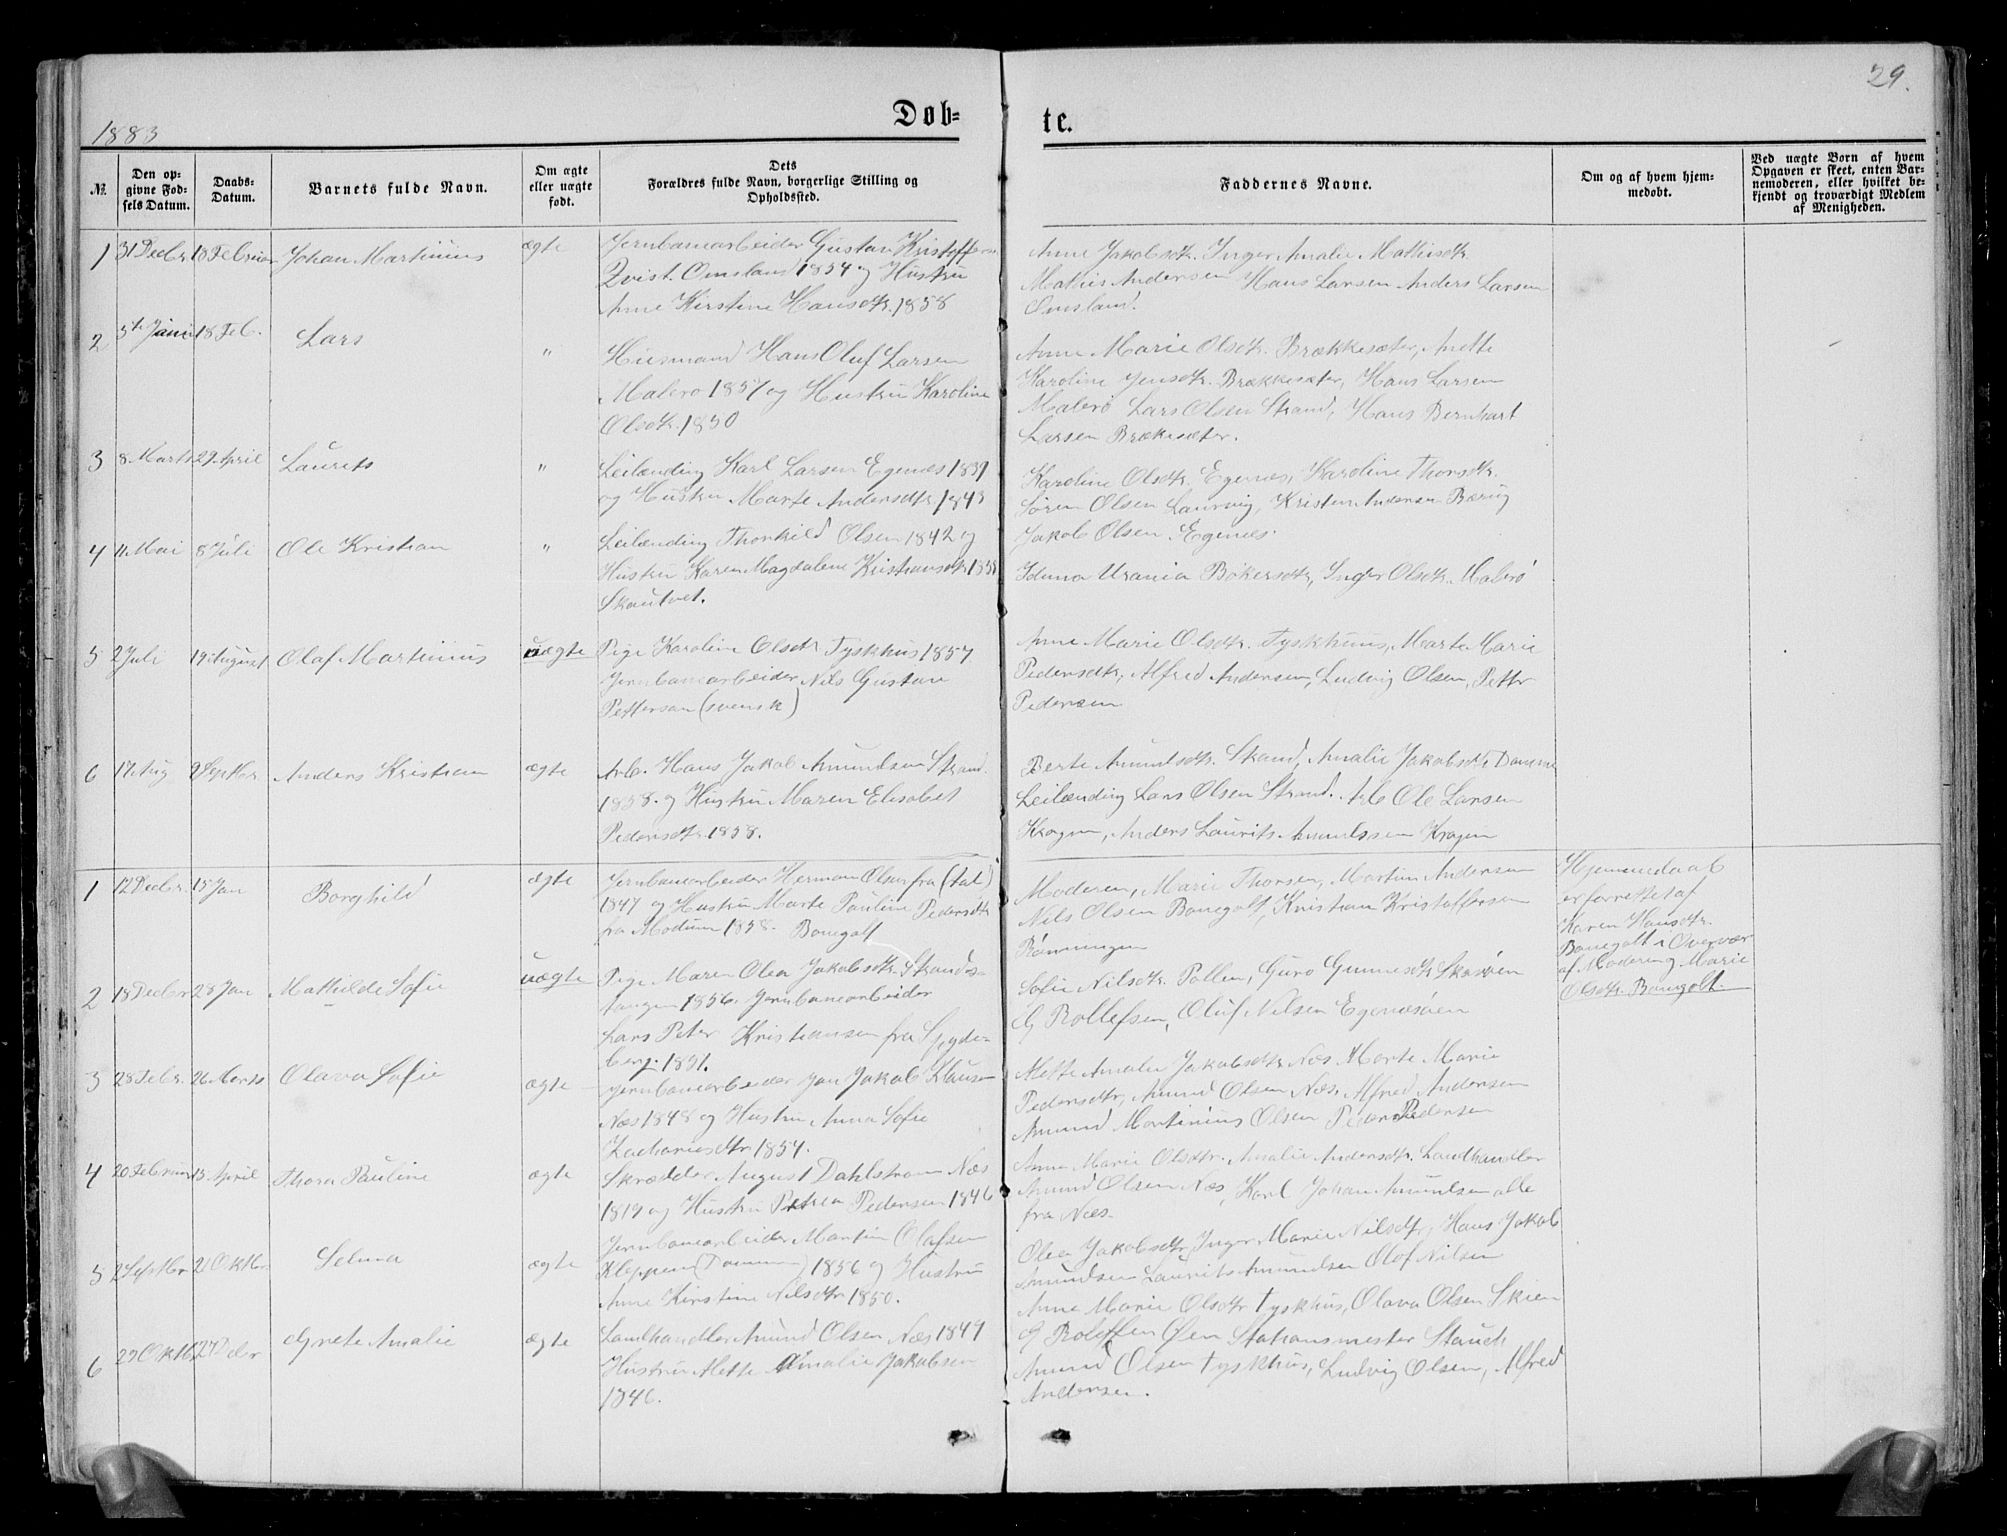 29.
1883
Døb-
te.
№
Den op-
givne Fød-
sels Datum.
Daabs-
Datum.
Barnets fulde Navn.
Om ægte
eller uægte
født.
Dets
Forældres fulde Navn, borgerlige Stilling og
Opholdssted.
Faddernes Navne.
Om og af hvem hjem-
medøbt.
Ved uægte Børn af hvem
Opgaven er skeet, enten Bar-
nemoderen, eller hvilket be-
kjendt og troværdigt Medlem
af Menigheden.
1 31 Decbr. 18 Februar Johan Martinius ægte
Jernbanearbeider Gustav Kristoffers
Qvist. Omsland 1854 og Hustru
Anne Kirstine Hansdtr. 1858
Anne Jakobsdtr. Inger Amalie Mathisdtr.
Mathis Andersen Hans Larsen Anders Larsen
Omsland.
2 18 Feb. Lars "
Husmand Hans Oluf Larsen
Malerø 1857 og Hustru Karoline
Olsdtr. 1850
Anne Marie Olsdtr. Brækkesæter, Anette
Karoline Jensdtr. Brækkesæter, Hans Larsen
Malerø Lars Olsen Strand, Hans Bernhart
Larsen Brækesæter.
3 8 Marts 29 April Laurits "
Leilænding Karl Larsen Egenæs 1839
og Hustru Marte Andersdtr. 1843
Karoline Olsdtr. Egenæs, Karoline Thorsdtr.
Søren Olsen Laurvig, Kristen Andersen
Jakob Olsen. Egenæs.
4 11 Mai 8 Juli Ole Kristian "
Leilænding Thorkild Olsen 1842 og
Hustru Karen Magdalene Kristiansdtr.
Skautvet.
Iduna Urania Bøkersdtr, Inger Olsdtr. Malerø
5 2 Juli 19 August Olaf Martinius uægte
Pige Karoline Olsdtr Tyskhus 1857
Jernbanearbeider Nils Gustav
Petterson (svensk)
Anne Marie Olsdtr. Tyskhuus, Marte Marie
Pedersdtr, Alfred Andersen, Ludvig Olsen, Petter
Pedersen
6 17 Aug 2 Septbr. Anders Kristian ægte
Arb. Hans Jakob Amundsen Strand.
1858. og Hustru Maren Elisabet
Pedersdtr. 1858.
Berte Amundsdtr. Strand, Amalie Jakobsdtr
Leilænding Lars Olsen Strand. Arb Ole Larsen
Kragen, Anders Laurits Amundssen Kragen
1 12 Decbr. 15 Jan Borghild ægte
Jernbanearbeider Herman Olsen fra
1847 og Hustru Marte Pauline Pedersdtr
fra Modum 1858. Bamgolt
Moderen, Marie Thorsen, Martin Andersen
Nils Olsen Bamgolt, Kristian Kristoffersen
Rønningen
Hjemmedaab
er forrettet af
Karen Hansdtr.
Bamgolt i Overvær
af Moderen og Marie
Olsdtr. Bamgolt.
2 18 Decbr 28 Jan Mathilde Sofie uægte
Pige Maren Olea Jakobsdtr. Strands-
tangen 1856. Jernbanearbeider
Lars Peter Kristiansen fra Spyde-
berg.
Sofie Nilsdtr. Pollen, Guro Gunnesdtr
G Rollefsen, Oluf Nilsen
3 28 Febr. 26 Marts Olava Sofie ægte
Jernbanearbeider Jan Jakob Klausen
Næs 1848 og Hustru Anna Sofie
Zachariasdtr 1857.
Mette Amalie Jakobsdtr. Næs Marte Marie
Pedersdtr, Amund Olsen Næs, Alfred Andersen
Amund Martinius Olsen Peder Pedersen
4 20 Februar 15 April Thora Pauline ægte
Skrædder August Dahlstrøm Næs
1819 og Hustru Petrea Pedersen 1846
Anne Marie Olsdtr. Amalie Andersdtr. Landhandler
Amund Olsen Næs, Karl Johan Amundsen alle
fra Næs.
5 2 Septbr 21 Oktbr. Selma ægte
Jernbanearbeider Martin Olafsen
Kleppen 1856 og Hustru
Anne Kirstine Nilsdtr 1850.
Olea Jakobsdtr, Inger Marie Nilsdtr, Hans Jakob
Amundsen Laurits Amundsen Olof Nilsen
6 Agnete Amalie ægte
Landhandler Amund Olsen Næs 1849
Hustru Mette Amalie Jakobsen
1846.
Anne Marie Olsdtr Tyskhus, Olava Olsen Skien
G Rolefsen Stationsmester
Amund Olsen Tyskhus, Ludvig Olsen, Alfred
Andersen.